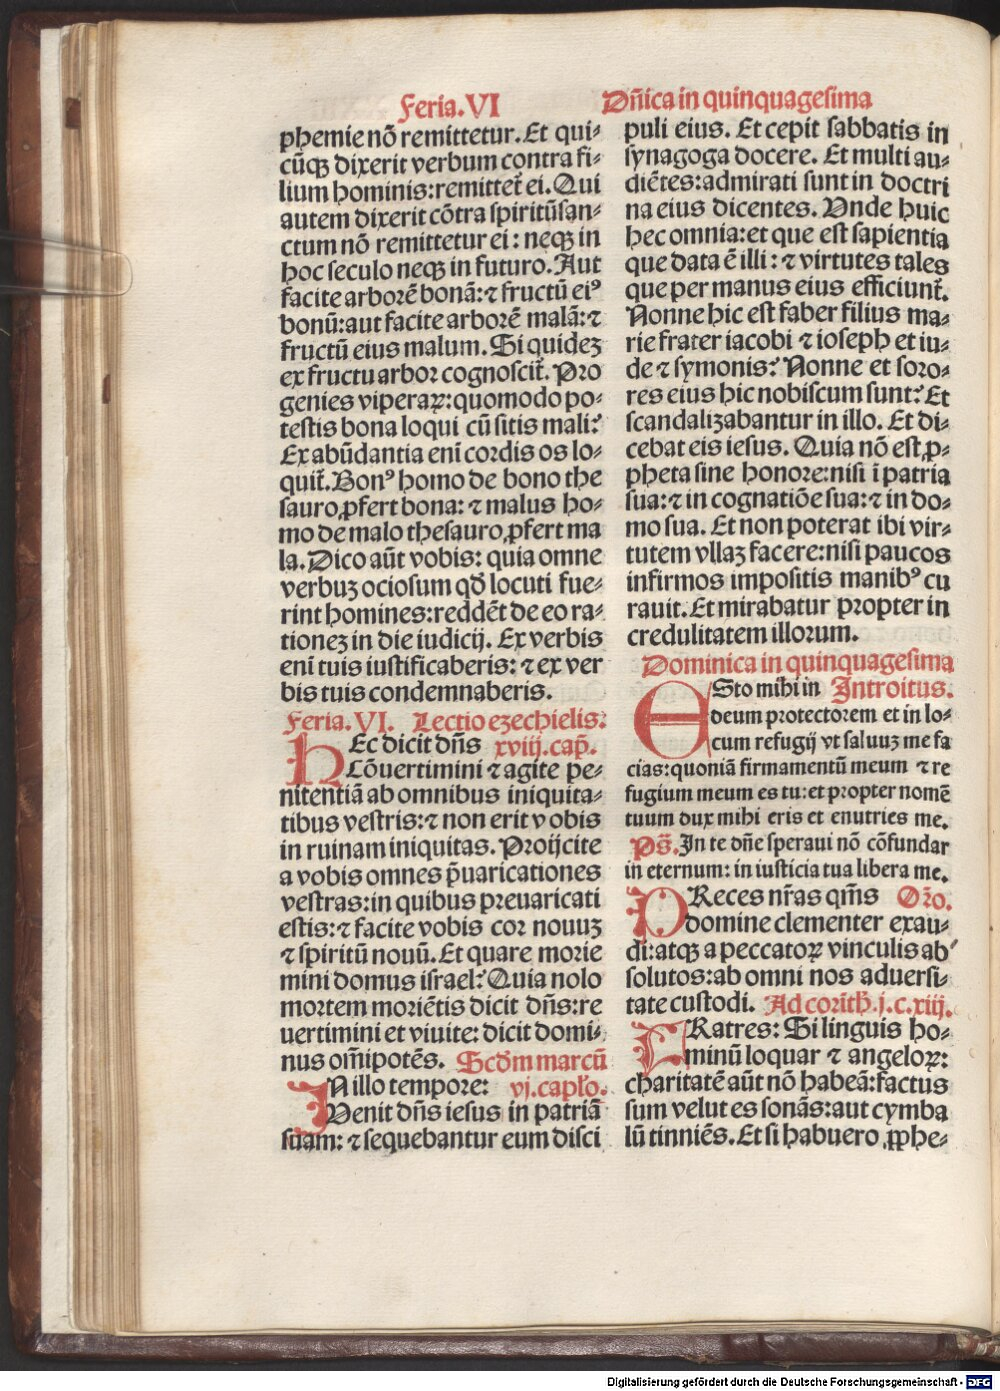 Feria.VI
Dñica in quinquagesima
phemie nõ remittetur. Et qui⸗
cũqꝫ dixerit verbum contra fi⸗
lium hominis:remittet̃ ei. Qui
autem dixerit cõtra spiritũsan⸗
ctum nõ remittetur ei : neqꝫ in
hoc seculo neqꝫ in futuro. Aut
facite arborẽ bonã:⁊ fructũ eiꝰ
bonũ:aut facite arborẽ malã:⁊
fructũ eius malum. Si quideꝫ
ex fructu arbor cognoscit̃. Pro
genies viperaꝝ:quomodo po⸗
testis bona loqui cũ sitis mali?
Ex abũdantia eni cordis os lo⸗
quit̃. Bonꝰ homo de bono the
sauro ꝓfert bona: ⁊ malus ho⸗
mo de malo thesauro ꝓfert ma
la. Dico aũt vobis: quia omne
verbuꝫ ociosum qđ locuti fue⸗
rint homines:reddẽt de eo ra⸗
tioneꝫ in die iudicij. Ex verbis
eni tuis iustificaberis: ⁊ ex ver
bis tuis condemnaberis.
Feria. VI. Lectio ezechielis.
HEc dicit dñs xviij.cap̃.
Cõuertimini ⁊ agite pe⸗
nitentiã ab omnibus iniquita⸗
tibus vestris:⁊ non erit vobis
in ruinam iniquitas. Proijcite
a vobis omnes p̃uaricationes
vestras:in quibus preuaricati
estis:⁊ facite vobis cor nouuꝫ
⁊ spiritũ nouũ. Et quare morie
mini domus israel? Quia nolo
mortem moriẽtis dicit dñs:re
uertimini et viuite: dicit domi⸗
nus om̃ipotẽs. Scđm marcũ
IN illo tempore: vj.capl̃o.
Venit dñs iesus in patriã
suam: ⁊ sequebantur eum disci
puli eius. Et cepit sabbatis in
synagoga docere. Et multi au⸗
diẽtes:admirati sunt in doctri
na eius dicentes. Vnde huic
hec omnia:et que est sapientia
que data ẽ illi : ⁊ virtutes tales
que per manus eius efficiunt̃.
Nonne hic est faber filius ma⸗
rie frater iacobi ⁊ ioseph et iu⸗
de ⁊ symonis? Nonne et soro⸗
res eius hic nobiscum sunt? Et
scandalizabantur in illo. Et di⸗
cebat eis iesus. Quia nõ est ꝓ⸗
pheta sine honore:nisi ĩ patria
sua:⁊ in cognatiõe sua:⁊ in do⸗
mo sua. Et non poterat ibi vir⸗
tutem vllaꝫ facere:nisi paucos
infirmos impositis manibꝰ cu
rauit. Et mirabatur propter in
credulitatem illorum.
Dominica in quinquagesima
ESto mihi in Introitus.
deum protectorem et in lo⸗
cum refugij vt saluuꝫ me fa
cias:quoniã firmamentũ meum ⁊ re
fugium meum es tu:et propter nomẽ
tuum dux mihi eris et enutries me.
Ps̃. In te dñe speraui nõ cõfundar
in eternum: in iusticia tua libera me.
PReces nr̃as qm̃s Or̃o.
domine clementer exau⸗
di:atqꝫ a peccatoꝝ vinculis ab
solutos:ab omni nos aduersi⸗
tate custodi. Ad corith̃.j.c.xiij.
FRatres: Si linguis ho⸗
minũ loquar ⁊ angeloꝝ:
charitatẽ aũt nõ habeã:factus
sum velut es sonãs:aut cymba
lũ tinniẽs. Et si habuero ꝓphe⸗
Digitalisierung gefördert durch die Deutsche Forschungsgemeinschaft - DFG